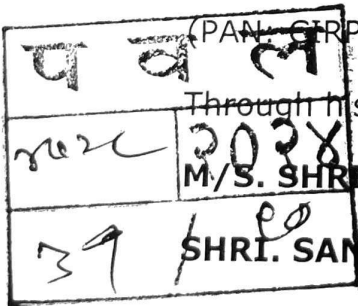 (PAN: GIRP
प व ल
Through his
२०२४
M/S. SHR
३१ /
SHRI. SAN